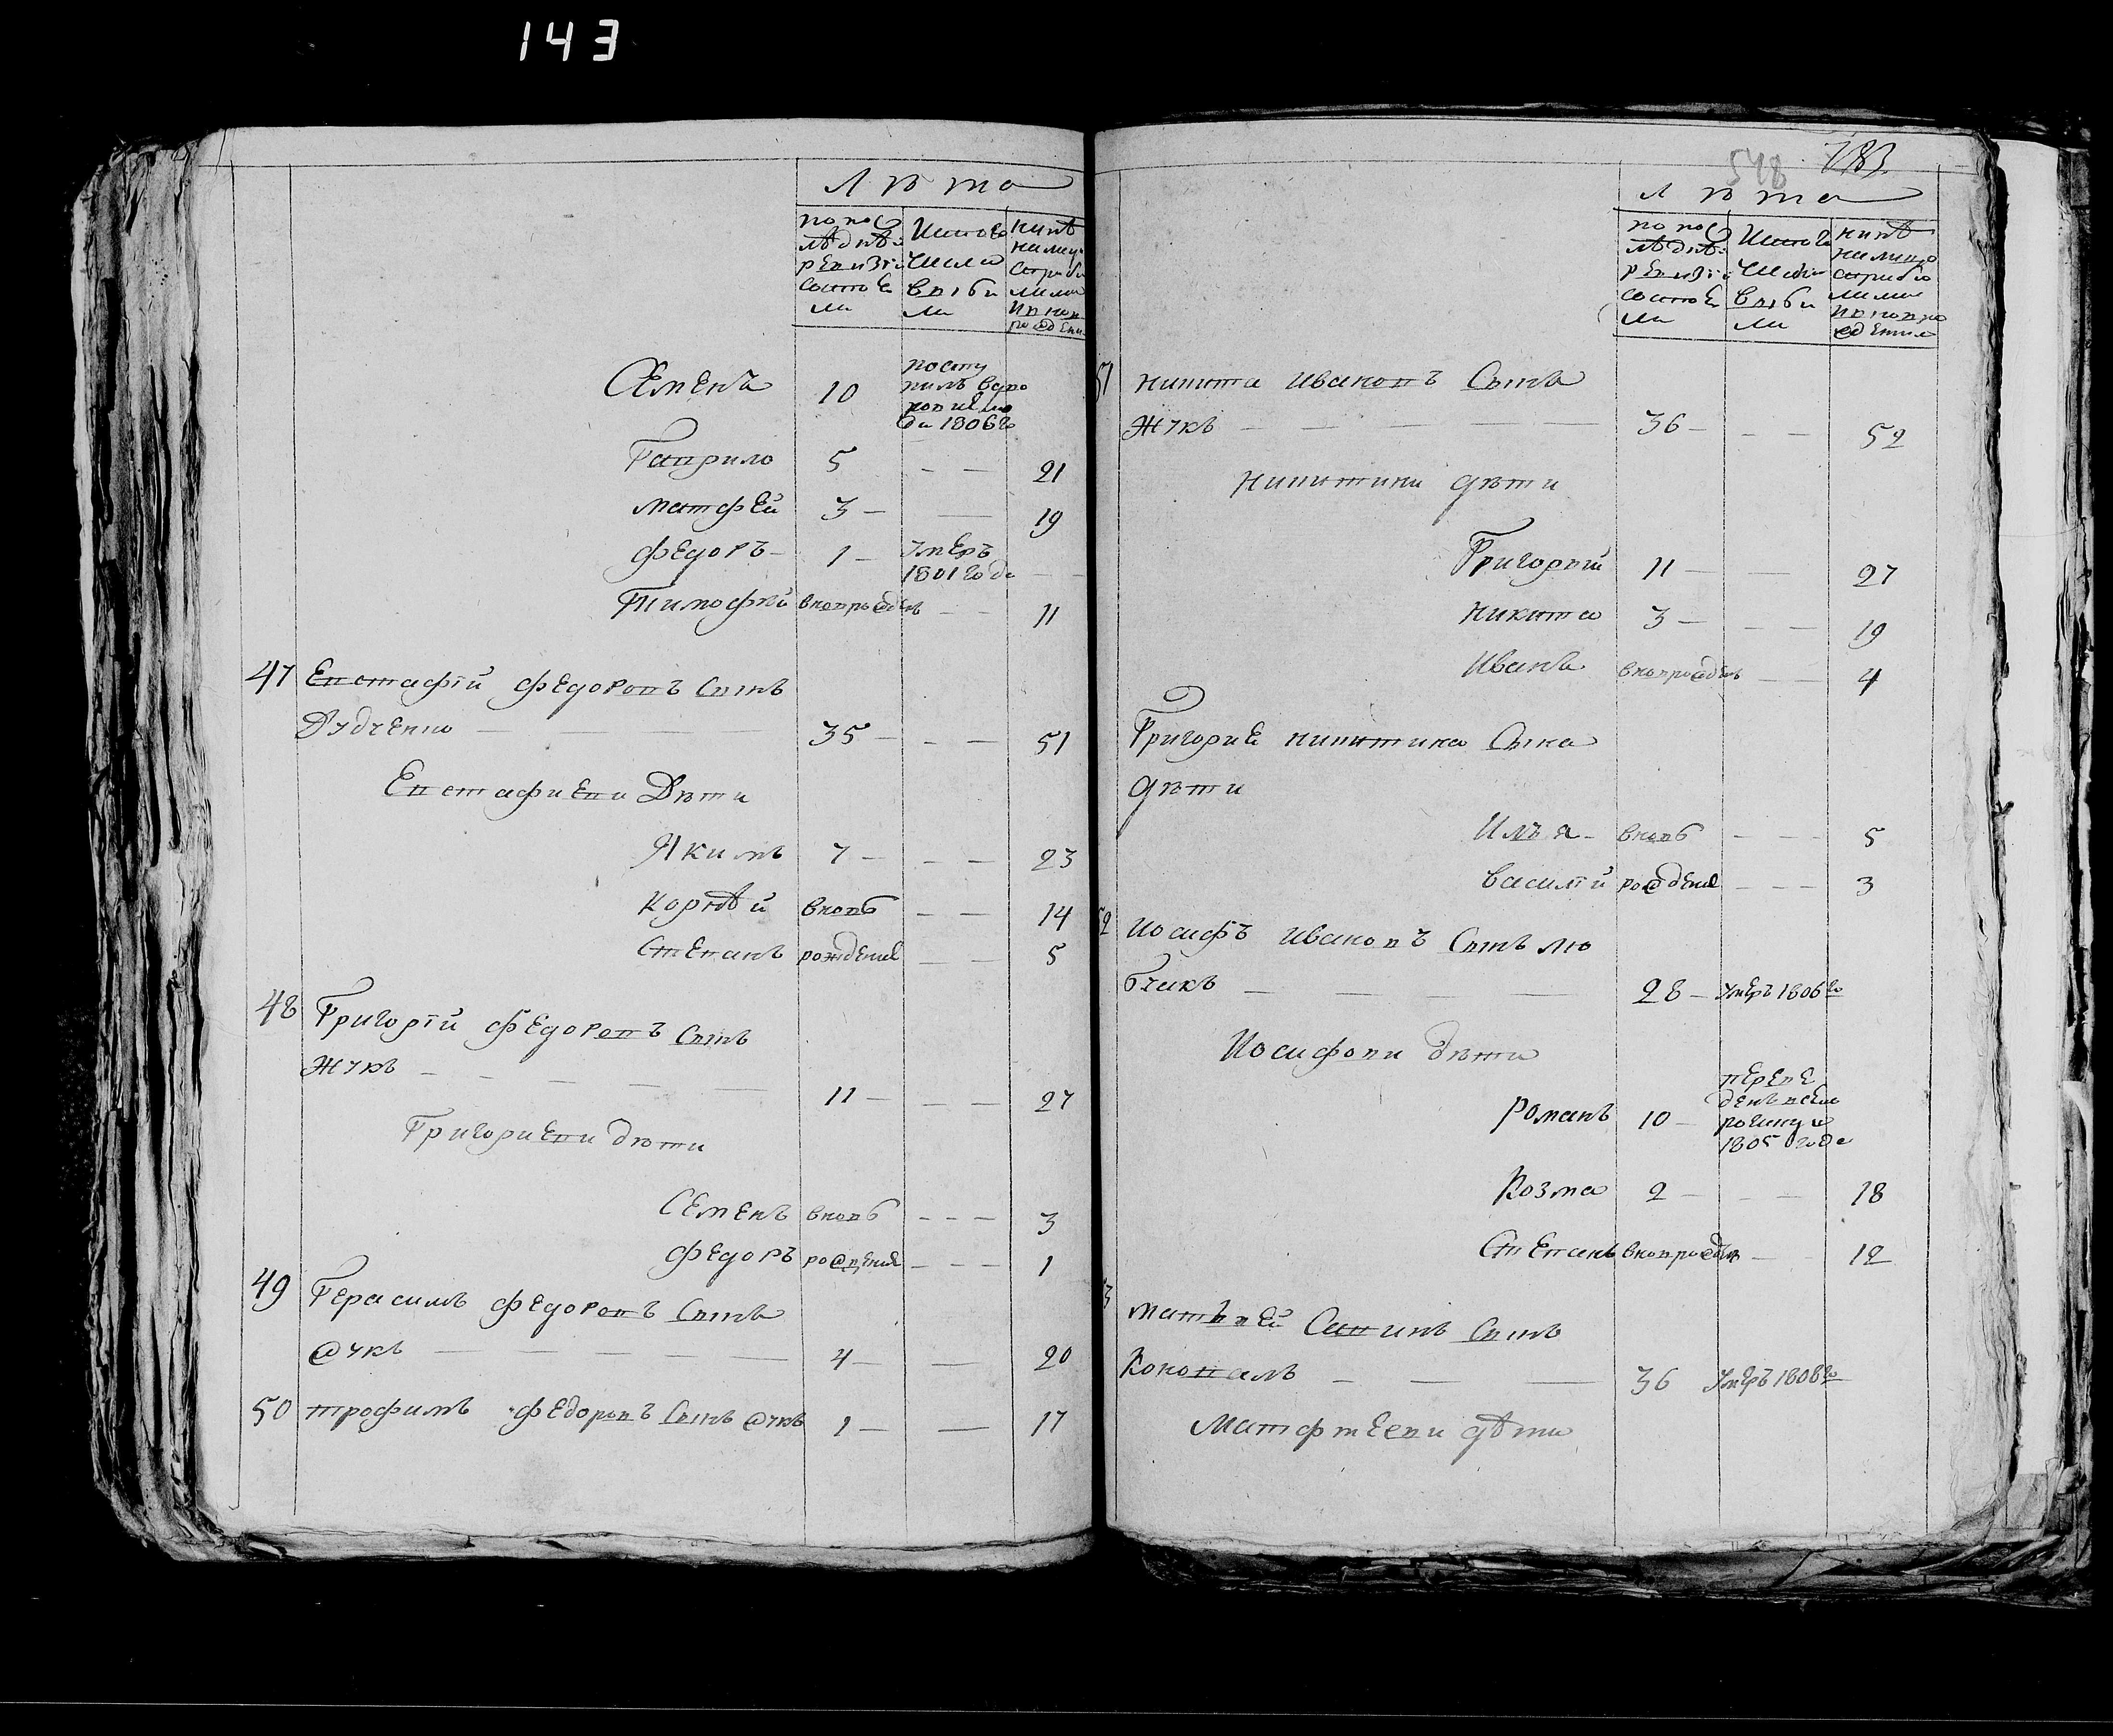 143
Лѣта
по пос
лѣднѣ:
ревизіи
состоя
ли
Ис того
числа
выбы
ли
нынѣ
на лицо
с прибы
лыми
и вновь
рожден
Семенъ 10 посту
пилъ вдво
ровие
да 1806го
Гаврило 5 — — 21
матфей 3 — — 19
федоръ — 1 — умеръ
1801 года —
Тимофей вновьрожденъ — — 11
47 Евстафій федоровъ сынъ
Дудченко — — — 35 — — — 51
Евстафиеви Дѣти
Якимъ 7 — — — 23
Корнѣй вновь — — 14
Степанъ рожденые — — 5
48 Григорій федоровъ сынъ
Жукъ — — — — — 11 — — — 27
Григориеви дѣти
Семенъ вновь — — — 3
федоръ рожденые — — — 1
49 Герасимъ федоровъ сынъ
жукъ — — — — 4 — — 20
50 трофимъ федоровъ сынъ жукъ 1 — — 17
548 783
Лѣта
по пос
лѣднѣ:
ревизіи
состоя
ли
Ис того
числа
выбы
ли
нынѣ
на лицо
с прибы
лыми
и вновь ро
жденые
51 никита Ивановъ Сынъ
Жукъ — — — — — 36 — — — 52
никитини дѣти
Григорій 11 — — 27
никита 3 — — — 19
Иванъ вновьрожденъ — — 4
Григорие никитина Сына
дѣти
Илья — вновь — — — 5
василій рожденые — — — 3
52 Иосифъ Ивановъ Сынъ лю
бчикъ — — — — 28 — умеръ 1806го
Иосифови дѣти
Романъ 10 — переве
денъ
1805 года
Козма 2 — — — 18
Степанъ вновьрожденъ — 12
3 матвей Савинъ Сынъ
Коновалъ — — — 36 умеръ 1808го
Матфтееви дѣти